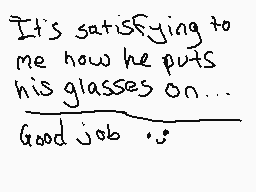 It's satisfying to
me how he puts
his glasses on...
Good job :)